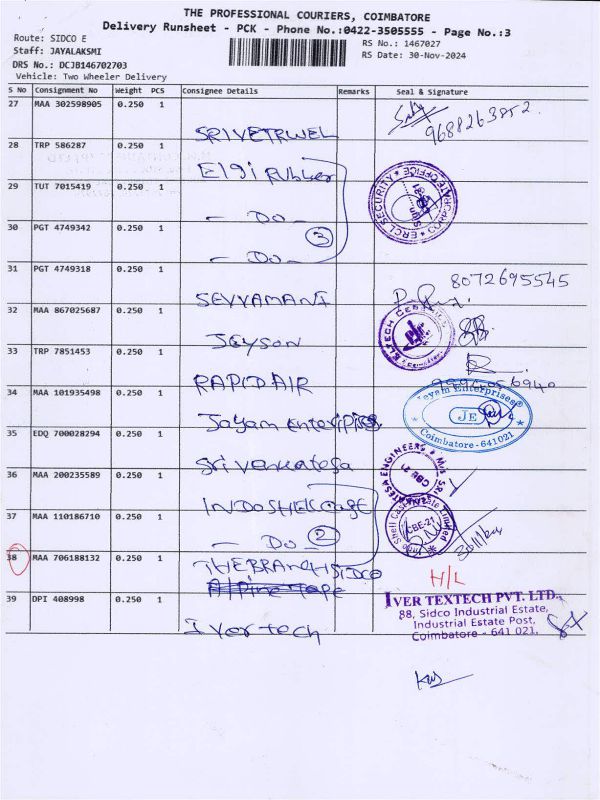 THE PROFESSIONAL COURIERS, COIMBATORE
Delivery Runsheet - PCK - Phone No.:0422-3505555 - Page No.:3
Route: SIDCO E
RS No.: 1467027
Staff: JAYALAKSMI
RS Date: 30-Nov-2024
DRS No.: DCJB146702703
Vehicle: Two Wheeler Delivery
S No Consignment No Weight PCS Consignee Details Remarks Seal & Signature
27 MAA 302598905 0.250 1 SRIVETRIVEL 9688263852
28 TRP 586287 0.250 1 Elgi Rubber
29 TUT 7015419 0.250 1 - Do -
30 PGT 4749342 0.250 1 - Do - 3
ERCL SECURITY CORPORATE OFFICE
31 PGT 4749318 0.250 1 SEVVAMANI 8072695545
32 MAA 867025687 0.250 1 JEYSON
33 TRP 7851453 0.250 1 RAPID AIR 9994056940
34 MAA 101935498 0.250 1 Jayam Enterprises
Jayam Enterprises
JE
Coimbatore - 641 021
35 EDQ 700028294 0.250 1 Sri Venkatesa
36 MAA 200235589 0.250 1 INDOSHELCAST
37 MAA 110186710 0.250 1 - Do - 2
CBE-21
38 MAA 706188132 0.250 1 THE BRANCH SIDCO H/L
Alpine Tape
39 DPI 408998 0.250 1 Iver tech
IVER TEXTECH PVT. LTD.,
88, Sidco Industrial Estate,
Industrial Estate Post,
Coimbatore - 641 021.